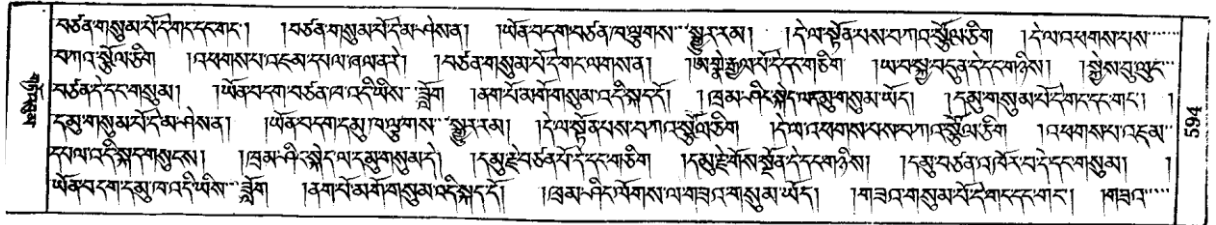 བཙན་གསུམ་པོ་དེ་གང་དང་གང་། །བཙན་གསུམ་པོ་དེ་མ་ཤེསན། །ཡོན་བདག་བཙན་ཁ་ལྟུགས་སྒྱུར་རམ། །དེ་ལ་སྟོན་པས་བཀའ་སྩོལ་ཅིག །དེ་ལ་འཕགས་པས་
བཀའ་སྩོལ་ཅིག །འཕགས་པ་འཇམ་དཔལ་ཞལ་ནརེ། །བཙན་གསུམ་པོ་དེ་གང་ལགས་ན། །ཨ་མྱེ་རྒྱལ་པོ་དེ་དང་གཅིག །ཡབ་སྐྱ་བདུན་དེ་དང་གཉིས། །སྐྱེས་བུ་ལུང་
བཙན་དེ་དང་གསུམ། །ཡོན་བདག་བཙན་ཁ་འདི་ཡིས་ཟློག །ནག་པོ་མགོ་གསུམ་འདི་སྐད་དོ། །ཁྲམ་ཤིང་སྐེད་ལ་དམུ་གསུམ་ཡོད། །དམུ་གསུམ་པོ་དེ་གང་དང་གང་། །
དམུ་གསུམ་པོ་དེ་མ་ཤེསན། །ཡོན་བདག་དམུ་ཁ་ལྟུགས་སྒྱུར་རམ། །དེ་ལ་སྟོན་པས་བཀའ་སྩོལ་ཅིག །དེ་ལ་འཕགས་པས་བཀའ་སྩོལ་ཅིག །འཕགས་པ་འཇམ་
དཔལ་འདི་སྐད་གསུངས། །ཁྲམ་ཤིང་སྐེད་ལ་དམུ་གསུམ་དེ། །དམུ་རྗེ་བཙན་པོ་དེ་དང་གཅིག །དམུ་རྗེ་གོས་སྔོན་དེ་དང་གཉིས། །དམུ་བཙན་འཁོར་བ་དེ་དང་གསུམ། །
ཡོན་བདག་དམུ་ཁ་འདི་ཡིས་ཟློག །ནག་པོ་མགོ་གསུམ་འདི་སྐད་དོ། །ཁྲམ་ཤིང་ལོགས་ལ་གཟའ་གསུམ་ཡོད། །གཟའ་གསུམ་པོ་དེ་གང་དང་གང་། །གཟའ་
594